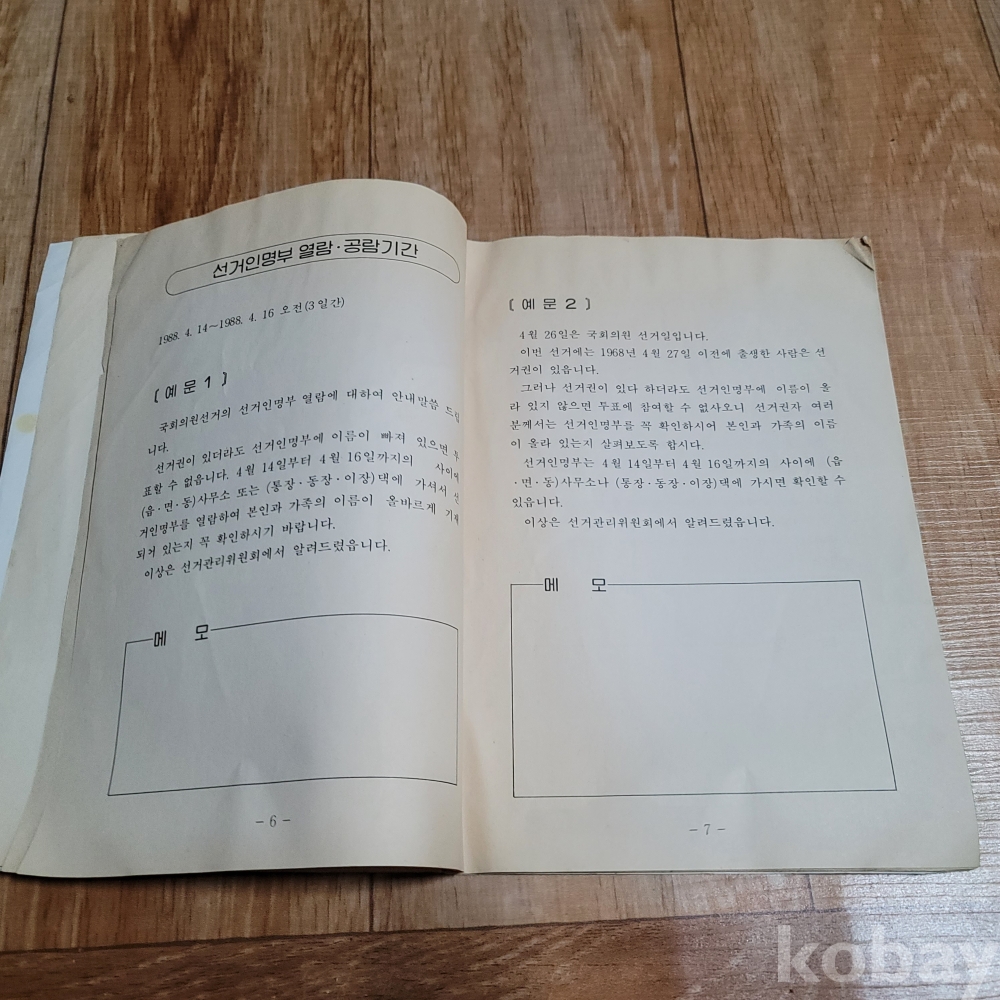 선거인명부 열람·공람기간
1988. 4. 14～1988. 4. 16 오전(3일간)
〔예 문 1〕
국회의원선거의 선거인명부 열람에 대하여 안내말씀 드립
니다.
선거권이 있더라도 선거인명부에 이름이 빠져 있으면 투
표할 수 없읍니다. 4월 14일부터 4월 16일까지의 사이에
(읍·면·동)사무소 또는 (통장·동장·이장)댁에 가셔서 선
거인명부를 열람하여 본인과 가족의 이름이 올바르게 기재
되어 있는지 꼭 확인하시기 바랍니다.
이상은 선거관리위원회에서 알려드렸읍니다.
메 모
- 6 -
〔예 문 2〕
4월 26일은 국회의원 선거일입니다.
이번 선거에는 1968년 4월 27일 이전에 출생한 사람은 선
거권이 있읍니다.
그러나 선거권이 있다 하더라도 선거인명부에 이름이 올
라 있지 않으면 투표에 참여할 수 없사오니 선거권자 여러
분께서는 선거인명부를 꼭 확인하시어 본인과 가족의 이름
이 올라 있는지 살펴보도록 합시다.
선거인명부는 4월 14일부터 4월 16일까지의 사이에 (읍
·면·동)사무소나 (통장·동장·이장)댁에 가시면 확인할 수
있읍니다.
이상은 선거관리위원회에서 알려드렸읍니다.
메 모
- 7 -
kobay